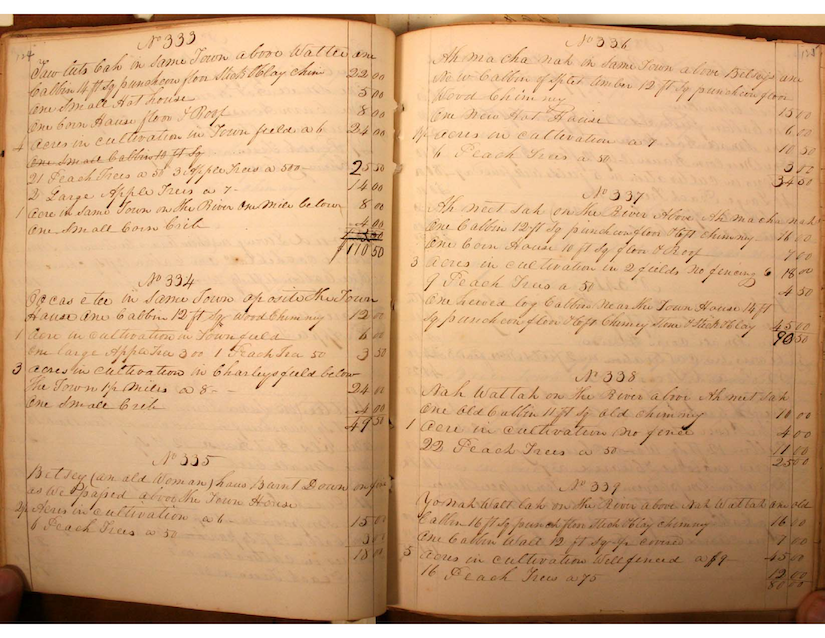 124
No 333
in Same Town above
Cabbin 14 ft Sq puncheon floor Stick & Clay Chim 22 00
One Small Hot house 5 00
One Corn House floor & Roof 8 00
4 acres in cultivation in Town field a 6 24 00
One Small Cabbin 10 ft Sq
21 Peach Trees a 50 3 apple Trees a 500 25 50
2 Large Apple Trees a 7 - 14 00
1 acre in Same Town on the River One Mile below 8 00
One Small Corn Crib 4 00
$110 50
No 334
in Same Town oposite the Town
House One Cabbin 12 ft Sq Wood Chimny 12 00
1 acre in cultivation in Townfield 6 00
One large Apple 300 1 Peach 50 3 50
3 acres in cultivation in Charleys field below
the Town Miles a 8 - - 24 00
One Small Crib 4 00
50
No 335
Betsey (an old Woman) haus Barnt Down
as We passed above the Town House
acres in cultivation a 6 - 15 00
6 Peach Trees a 50 3 00
18 00
125
No 336
Ah ma cha nah in Same Town above Betseys
New Cabbin of Split timber 12 ft Sq puncheon floor
Wood Chimny 15 00
One New Hot House 6 00
acres in cultivation a 7 10 50
6 Peach Trees a 50 3 00
34 50
No 337
Ah neet sah on the River Above Ah ma cha nah
One Cabbin 12 ft Sq puncheon floor & loft chimny 16 00
One Corn House 10 ft Sq floor & Roof 7 00
3 acres in cultivation in 2 fields no fencing 6 18 00
9 Peach Trees a 50 4 50
One hewed log Cabbin Near the Town House 14 ft
Sq puncheon floor & loft Chimny & Stick & Clay 45 00
90 50
No 338
Nah Wattah on the River above Ah neet sah
One Old Cabbin 11 ft Sq old chimny 10 00
1 acre in cultivation no fence 4 00
22 Peach Trees a 50 11 00
25 00
No 339
Yo nah Walt lah on the River above Nah Wattah an old
Cabbin 16 ft Sq punch floor Stick & Clay chimny 16 00
One Cabbin Walt 12 ft Sq covered 7 00
5 acres in cultivation Well fenced a $9 - 45 00
16 Peach Trees a 75 12 00
80 00